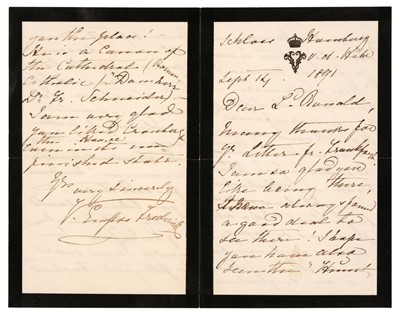 Schloss Homburg
v. d. Höhe
Sept 14. 1891
Dear Ld. Ronald,
Many thanks for
yr. letter fr.
I am so glad you
like being there,
always found
a good deal to
see there! I hope
you have also
seen the
you the place!
He is a Canon of
the Cathedral (Roman
Catholic)
Dr. Fr. Schneider –
I am very glad
you like
the House
even in its un-
finished state.
Yrs very sincerely
V. Empress Frederick